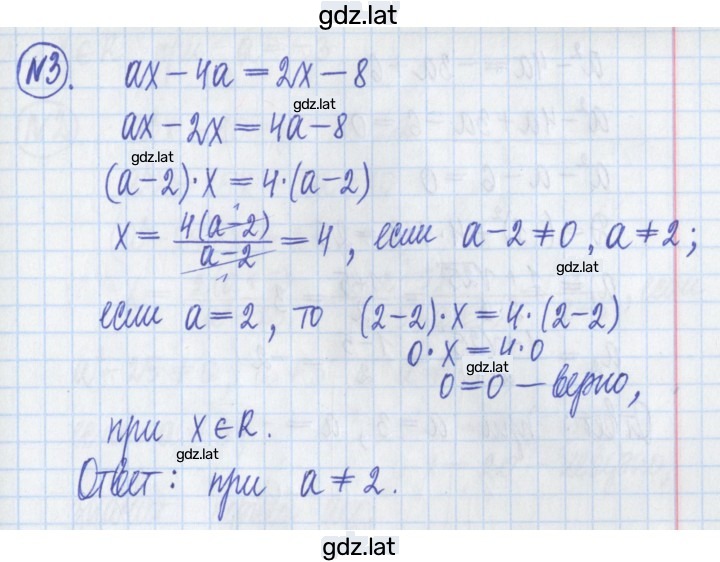 gdz.lat
№3. ax − 4a = 2x − 8
gdz.lat
ax − 2x = 4a − 8
gdz.lat
(a − 2)·x = 4·(a − 2)
x = 4(a − 2)/(a − 2) = 4, если a − 2 ≠ 0, a ≠ 2;
gdz.lat
если a = 2, то (2 − 2)·x = 4·(2 − 2)
0·x = 4·0
gdz.lat
0 = 0 — верно,
при x ∈ R.
gdz.lat
Ответ: при a ≠ 2.
gdz.lat